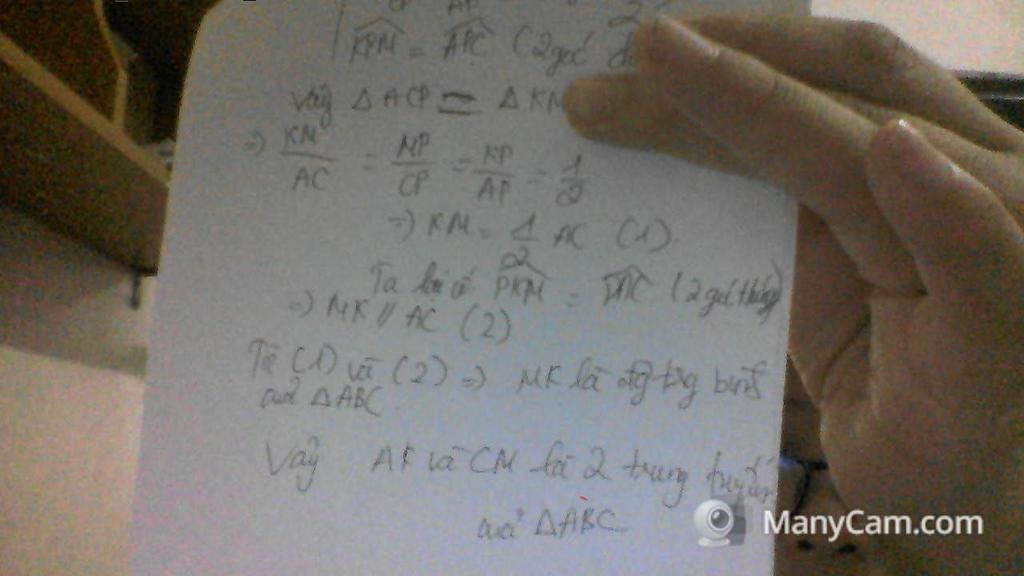 CP AP 2
KPM = APC (2 góc đ
Vậy Δ ACP = Δ KM
=> KM/AC = MP/CP = KP/AP = 1/2
=> KM = 1/2 AC (1)
Ta lại có PKM = PAC (2 góc
=> MK // AC (2)
Từ (1) và (2) => MK là đg tbg bình
của ΔABC
Vậy AK và CM là 2 trung tuyến
của ΔABC
ManyCam.com